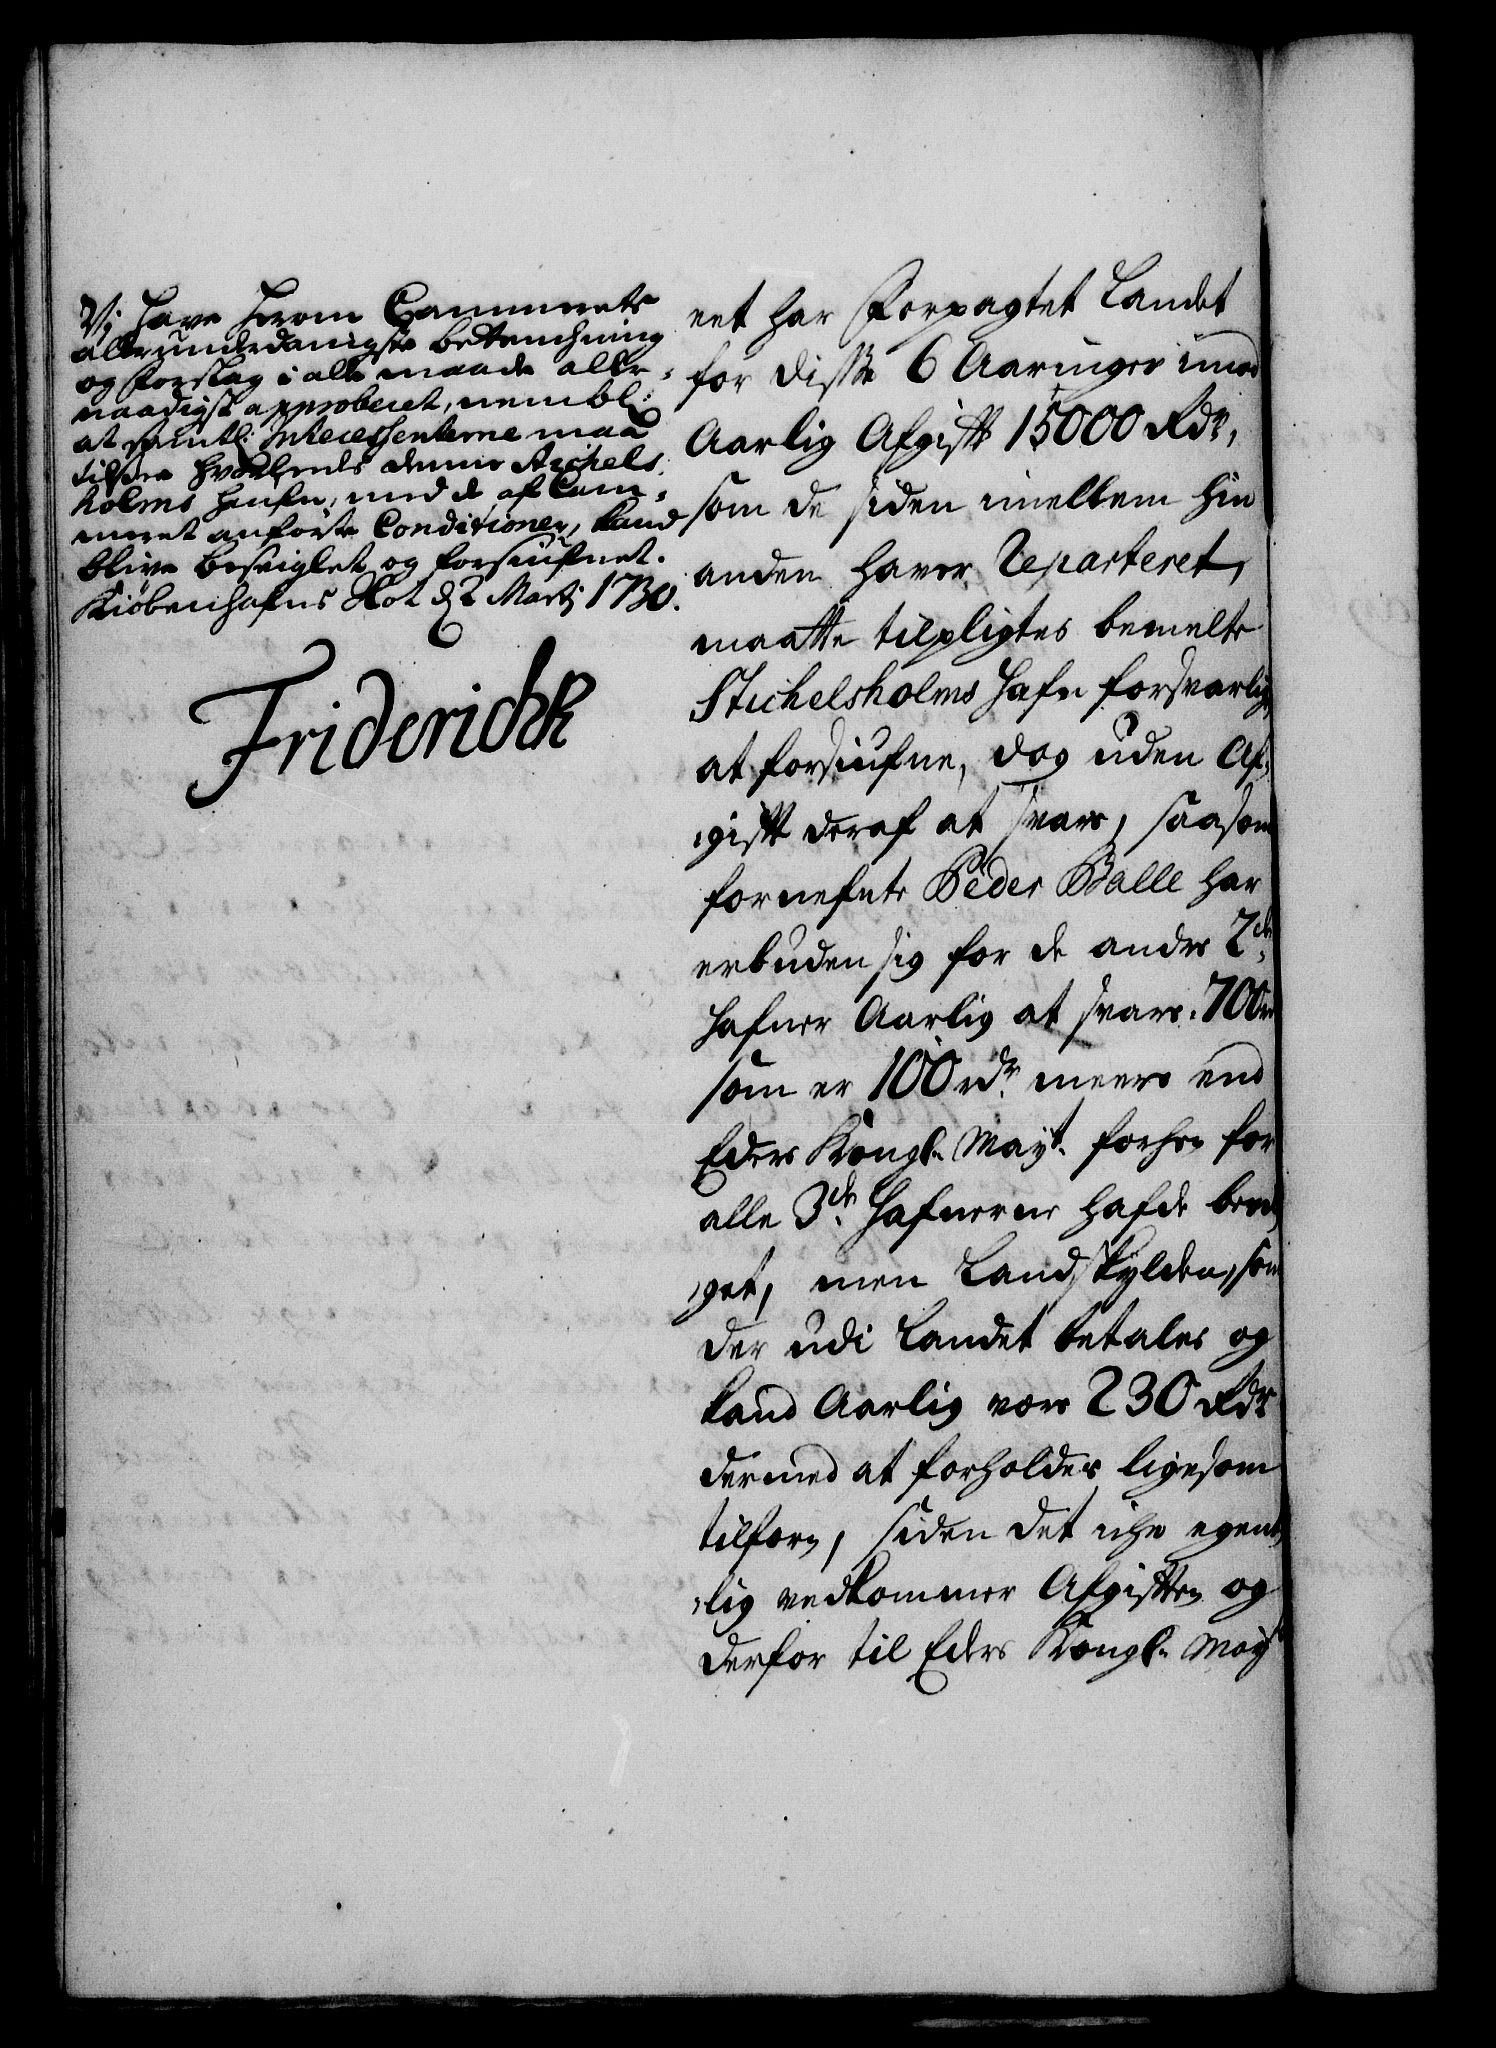 Vj have herom Cammerets
allerunderdanigste betenchning
og forslag i alle maade aller-
naadigst approberet, nembl:
at samtl: Interessenterne maa
tilsee hvorledes denne Stichels
holms hafn, med de af Cam-
meret anførte Conditioner, kand
blive beseiglet og forsiufnet.
Kiøbenhafns Slot d 2 Martj 1730.
Friderichk
eet har Forpagtet Landet
for disse 6 Aaringer imod
Aarlig Afgifft 15000 Rdr,
som de siden imellem hin
anden haver Reparteret,
maatte tilpligtes bemelte
Stichelsholms Hafn forsvarlig
at forsiufne, dog uden Af-
gifft deraf at svare, saasom
fornefnte Peder Kalle har
erbuden sig for de andre 2de
Hafner Aarlig at svare 700 r
som er 100 rdr meere end
Eders Kongl. Mayt. forhen for
alle 3de Hafnerne hafde
get, men Landskylden, som
der udi Landet betales og
kand Aarlig være 230 Rdr
dermed at forholdes ligesom
tilforn, siden det iche egent-
lig vedkommer Afgifften og
derfor til Eders Kongl. Mayt